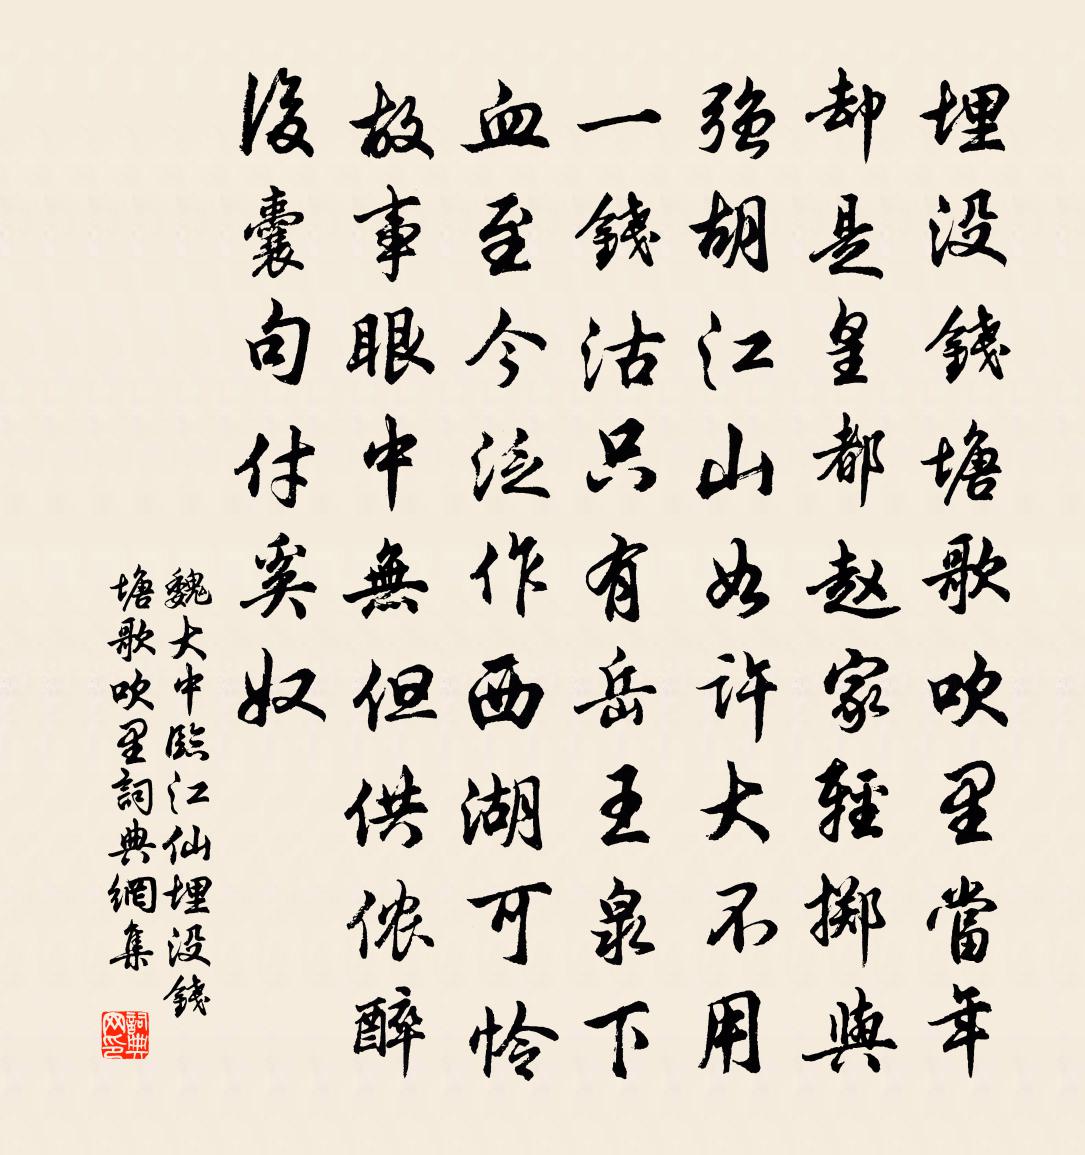 埋没錢塘歌吹里當年
却是皇都赵家輕擲與
強胡江山如許大不用
一錢沽只有岳王泉下
血至今泛作西湖可怜
故事眼中無但供侬醉
後囊句付奚奴
魏大中臨江仙埋没錢
塘歌吹里詞典網集
詞典網印